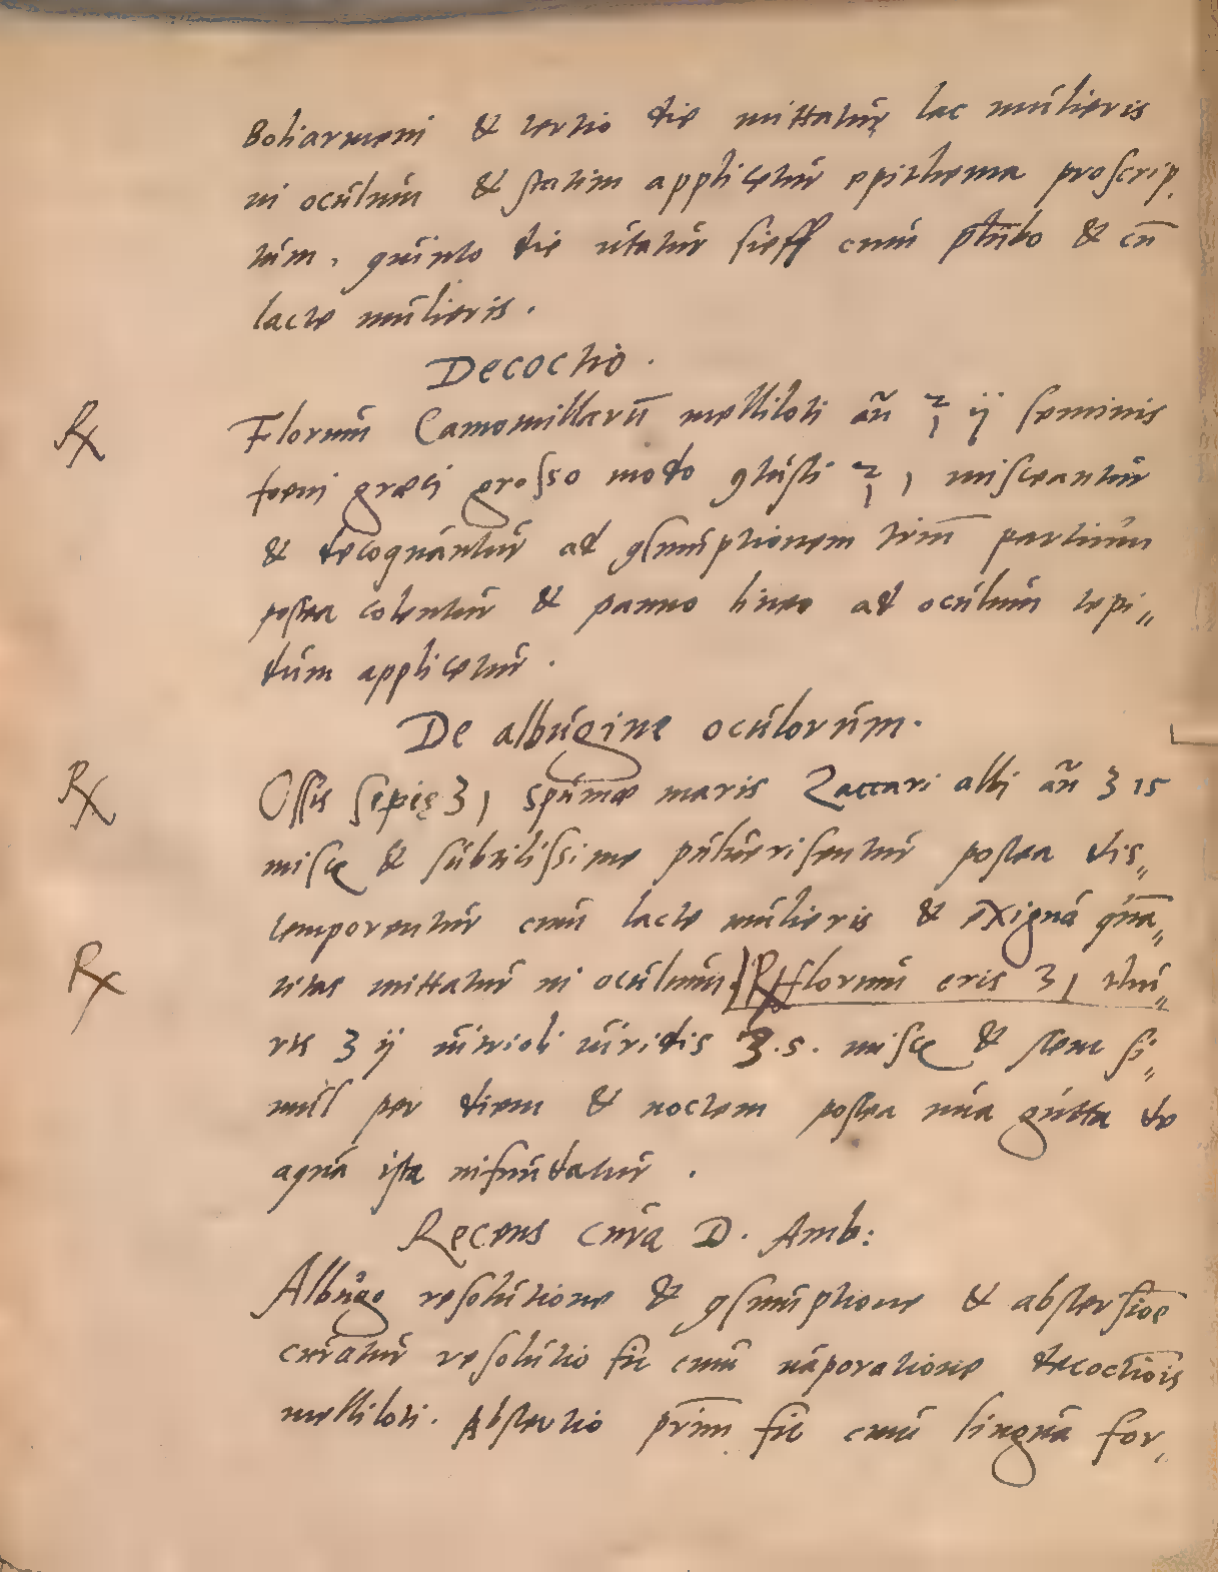 Boliarmeni & tertio die mittatur lac mulieris
in oculum & statim applicetur epithema proscrip
tum, quinto die utatur sieff cum plūbo & cū
lacte mulieris.
Decoctio.
℞ Florum Camomillarū melliloti añ ℥ ij seminis
foeni græci grosso modo ꝯtusti ℥ 1, misceantur
& decoquantur ad ꝯsumptionem triū partium
postea colentur & panno lineo ad oculum tepi„
dum applicetur.
De albugine oculorum.
℞ Ossis sepię ʒ 1 spumæ maris Zaccari albi añ ʒ 1 s
miscę & subtilissime pulverisentur postea dis„
temperentur cum lacte mulieris & exigua quā„
℞ titas mittatur in oculum. ℞ florum eris ʒ 1 thu„
ris ʒ ij vitrioli viridis ʒ.s. miscę & stent si„
mul per diem & noctem postea una gutta de
aqua ista infundatur.
Recens cura D. Amb:
Albugo resolutione & ꝯsumptione & abstersioē
curatur resolutio fit cum vaporatione decoctiōis
melliloti. Abstertio primū fit cum lingua for„